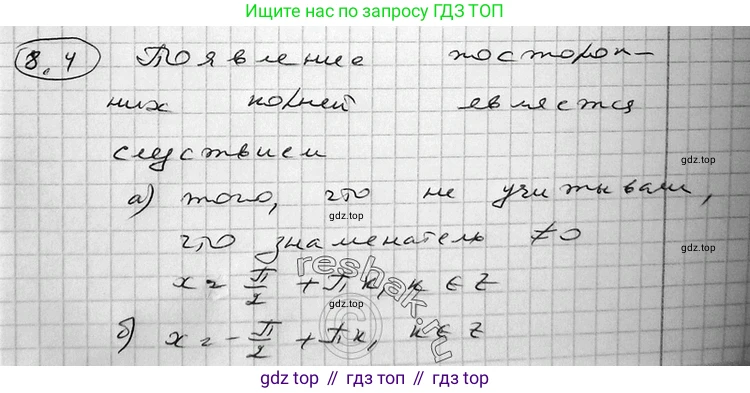 Ищите нас по запросу ГДЗ ТОП
8.4 Появление посторон-
них корней является
следствием
gdz.top
а) того, что не учитывали,
gdz.top
что знаменатель ≠0
gdz.top
x = π/2 + πk, k ∈ Z
reshak.ru
б) x = -π/2 + πk, k ∈ Z
gdz.top // гдз топ // gdz.top